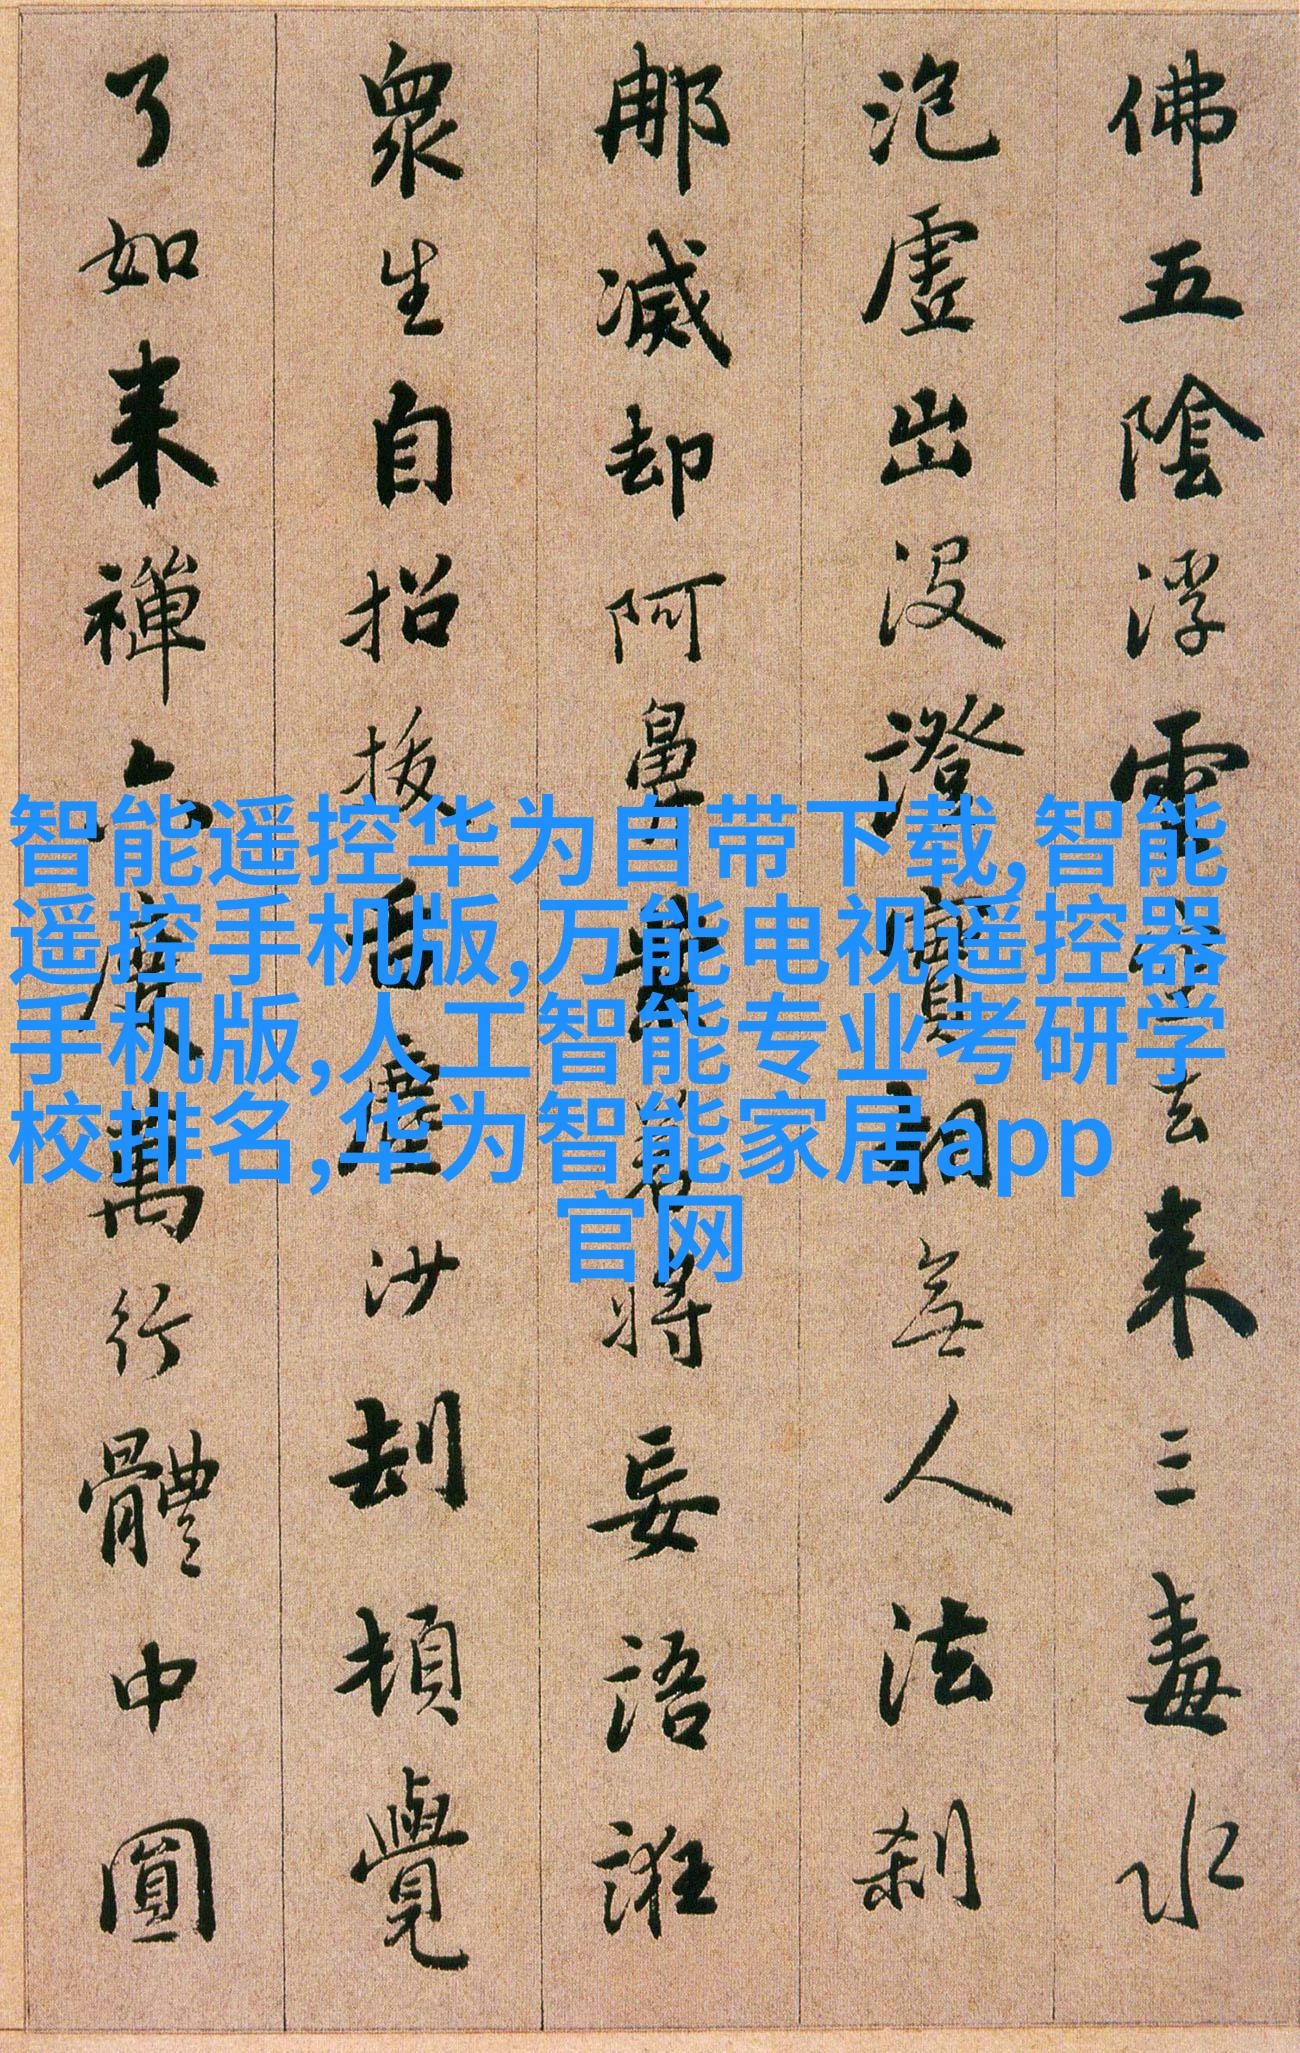 佛五陰浮雲空去来三毒水
泡虚出没證實相無人法刹
那滅却阿鼻業若將妄語誑
衆生自招拔舌塵沙劫頓覺
了如来禪六度萬行體中圓
智能遥控华为自带下载,智能
遥控手机版,万能电视遥控器
手机版,人工智能专业考研学
校排名,华为智能家居app
官网